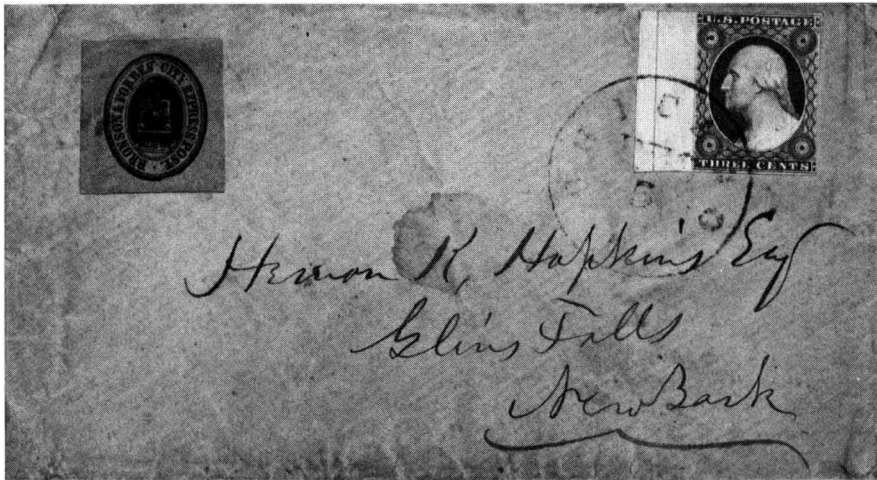 BRONSON & FORBES' CITY EXPRESS POST.
U.S. POSTAGE
THREE CENTS
Hemon K, Hopkins Esq
Glens Falls
New York